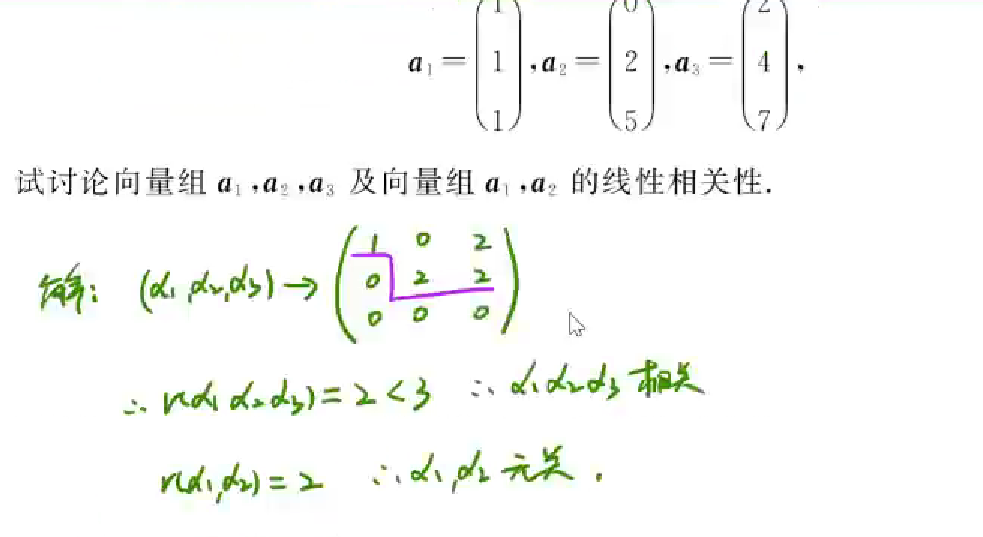 a₁ = (1 1 1), a₂ = (0 2 5), a₃ = (2 4 7),
试讨论向量组 a₁,a₂,a₃ 及向量组 a₁,a₂ 的线性相关性.
解: (α₁,α₂,α₃) → (1 0 2
0 2 2
0 0 0)
∴ r(α₁ α₂ α₃) = 2 < 3 ∴ α₁α₂α₃ 相关
r(α₁,α₂) = 2 ∴ α₁,α₂ 无关.